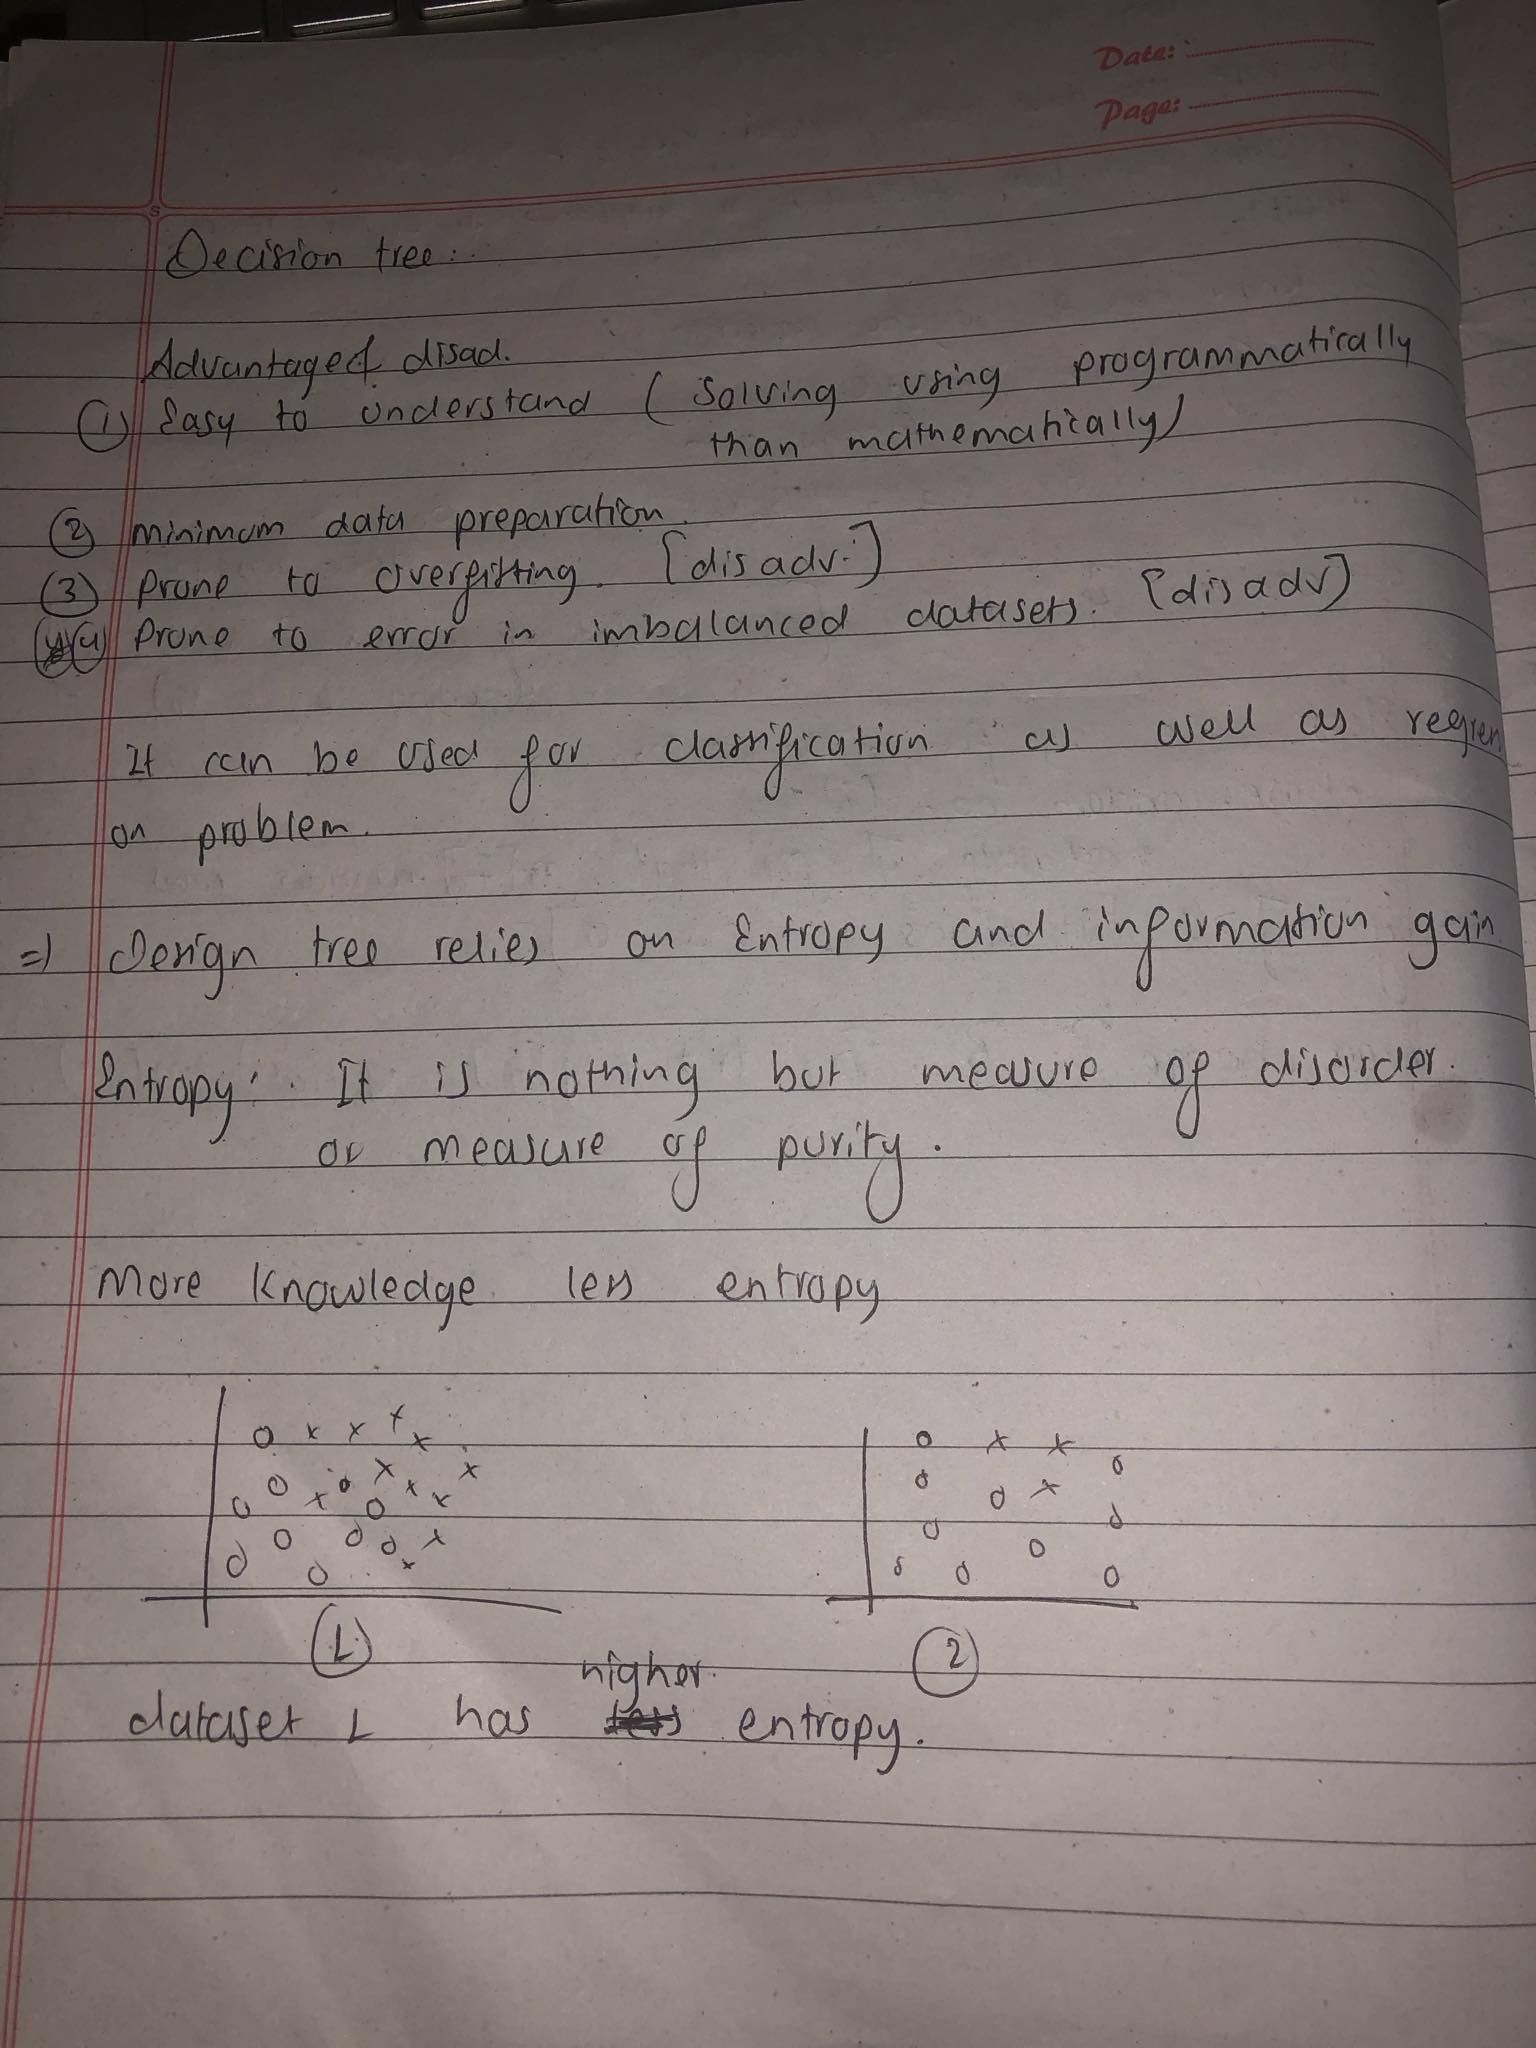 Date:
Page:
Decision tree:
Advantages & disad.
① Easy to understand ( Solving using programmatically
than mathematically)
② minimum data preparation.
③ Prone to overfitting. [disadv.]
④ Prone to error in imbalanced datasets. [disadv]
It can be used for classification as well as regressi
on problem.
=> Design tree relies on Entropy and information gain
Entropy: It is nothing but measure of disorder.
or measure of purity.
More knowledge less entropy
① ②
higher
dataset 1 has less entropy.